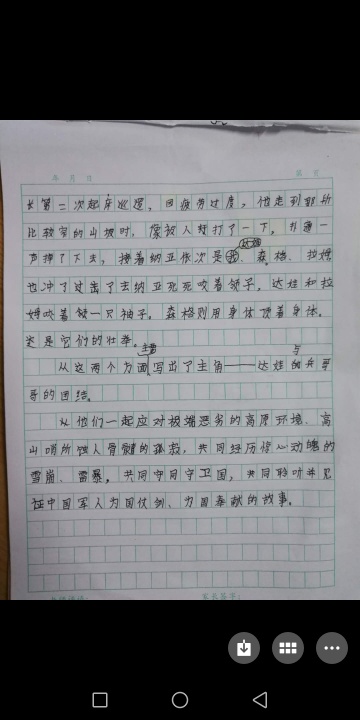 年 月 日 第 页
长第二次起床巡逻，因疲劳过度，他走到那所
比较窄的山坡时，像被人打了一下，打
声掉了下去，接着纳亚依次是我、森格、拉姆
达娃
也冲了过去了去纳亚死死咬着领子，达娃和拉
姆咬着领一只袖子，森格则用身体顶着身体。
这是它们的壮举。
主要
从这两个方面写出了主角——达娃的兵哥
与
哥的团结。
从他们一起应对极端恶劣的高原环境、高
山哨所蚀人骨髓的孤寂，共同经历惊心动魄的
雪崩、雷暴，共同守同守卫国，共同聆听并见
证中国军人为国仗剑、为国奉献的故事。
家长签字：